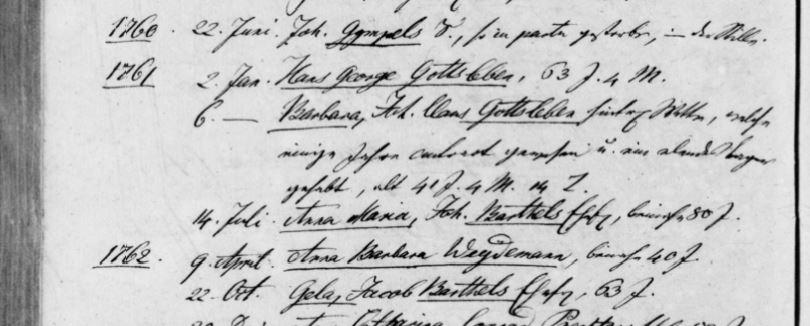 1760. 22. Juni. Joh. Gympels F., so in partu gestorben, in der Stille.
1761 2. Jan. Hans George Gottsleben, 63 J. 4 M.
6. — Barbara, Joh. Claus Gottsleben hinterl. Wittw, welche
einige Jahre contract gewesen u. ein elendes Lager
gehabt, alt 41 J. 4 M. 14 T.
14. Juli. Anna Maria, Joh. Barthels Ehefr, beinahe 80 J.
1762. 9. April. Anna Barbara Weydemann, beinahe 40 J.
22. Oct. Gela, Jacob Barthels Ehefr, 63 J.
Catharina